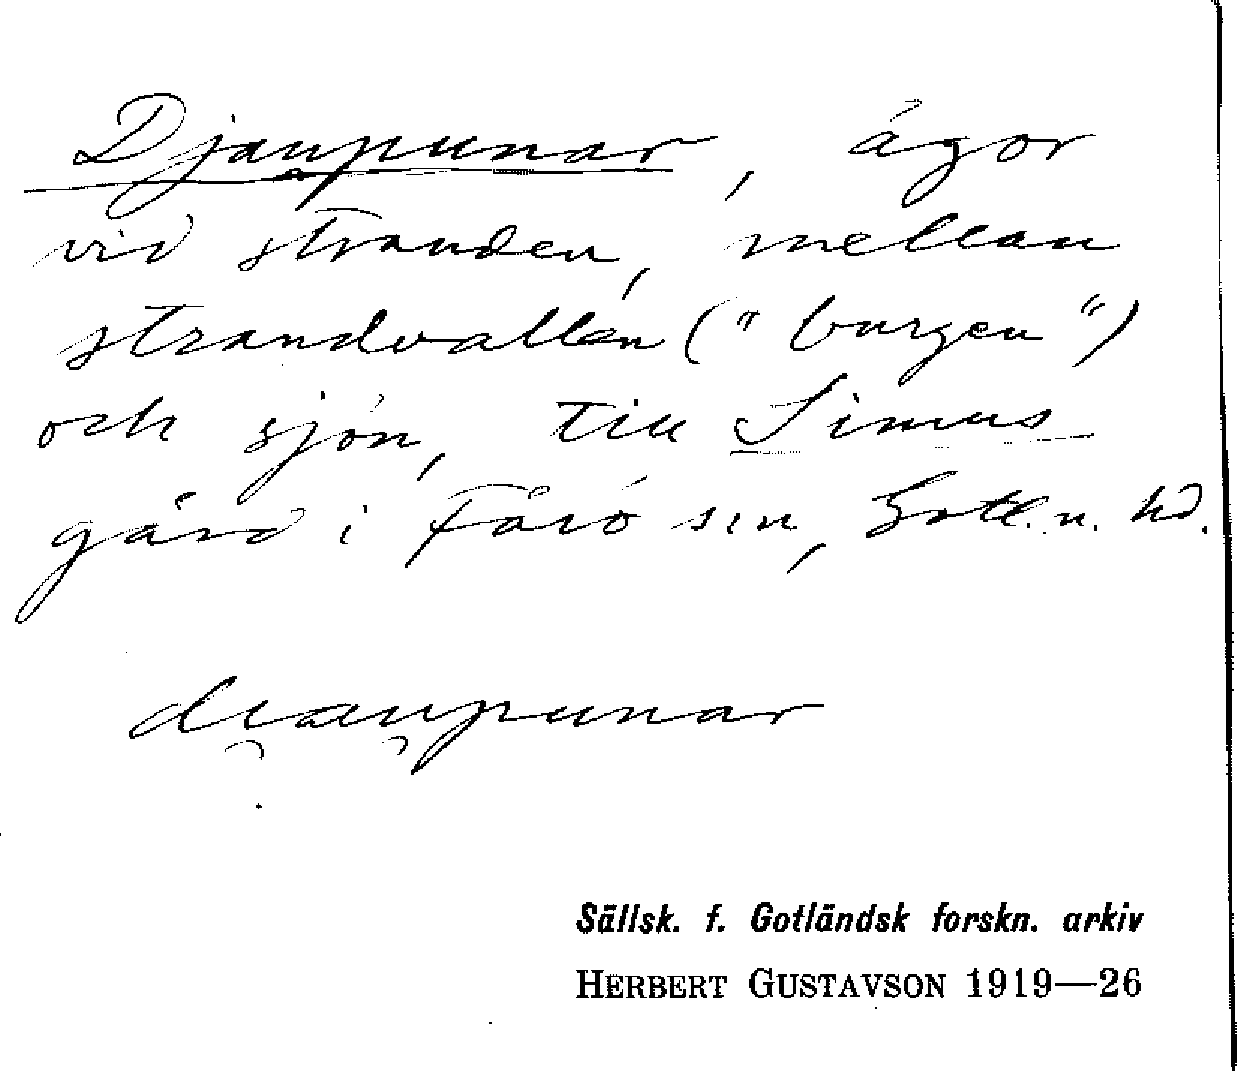 Djaupunar, ägor
vid stranden, mellan
strandvallen ("burgen")
och sjön, till Simus
gård i Fårö sn, Gotl. n. hd.
di̯au̯punar
Sällsk. f. Gotländsk forskn. arkiv
HERBERT GUSTAVSON 1919—26